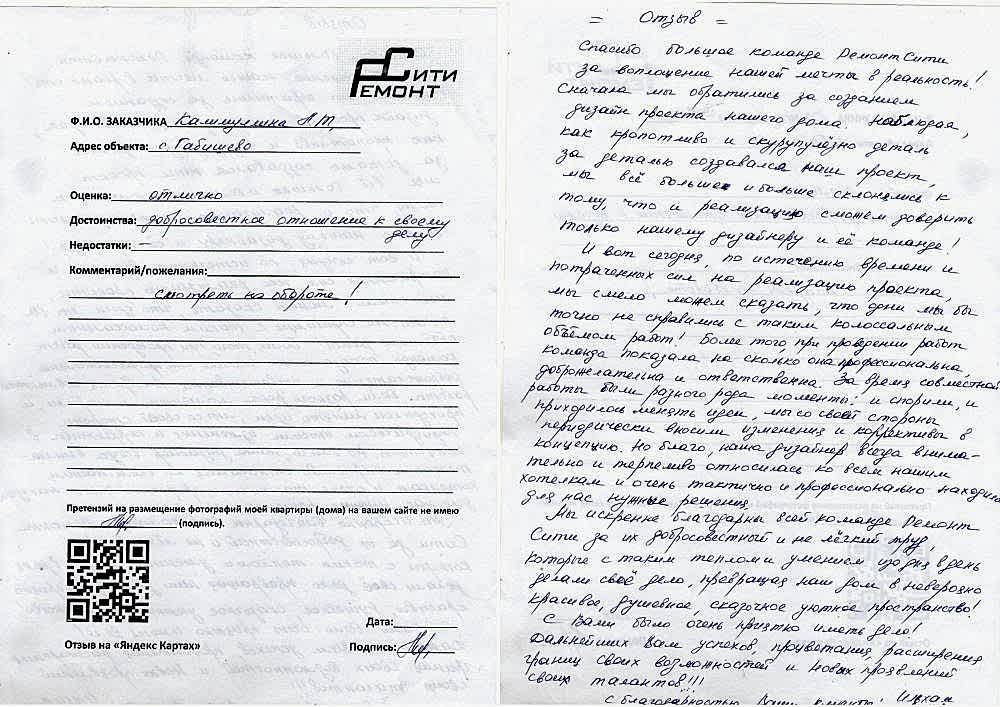 Сити
Ремонт
Ф.И.О. ЗАКАЗЧИКА
Адрес объекта: с. Габишево
Оценка: отлично
Достоинства: добросовестное отношение к своему
делу
Недостатки: —
Комментарий/пожелания:
смотреть на обороте!
Претензий на размещение фотографий моей квартиры (дома) на вашем сайте не имею
(подпись).
Дата:
Отзыв на «Яндекс Картах»
Подпись:
= Отзыв =
Спасибо большое команде РемонтСити
за воплощение нашей мечты в реальность!
Сначала мы обратились за созданием
дизайн проекта нашего дома. Наблюдая,
как кропотливо и скурупулёзно деталь
за деталью создавался наш проект,
мы всё больше и больше склонялись к
тому, что и реализацию сможем доверить
только нашему дизайнеру и её команде!
И вот сегодня, по истечению времени и
потраченных сил на реализацию проекта,
мы смело можем сказать, что одни мы бы
точно не справились с таким колоссальным
объёмом работ! Более того при проведении работ
команда показала на сколько она профессиональна,
доброжелательна и ответственна. За время совместной
работы были разного рода моменты: и спорили, и
приходилось менять идеи, мы со своей стороны
периодически вносили изменения и коррективы в
концепцию. Но благо, наша дизайнер всегда внима-
тельно и терпеливо относилась ко всем нашим
хотелкам и очень тактично и профессионально находила
для нас нужные решения.
Мы искренне благодарны всей команде Ремонт
Сити за их добросовестный и не лёгкий труд,
которые с таким теплом и умением изо дня в день
делали своё дело, превращая наш дом в неверозно
красивое, душевное, сказочное уютное пространство!
С Вами было очень приятно иметь дело!
Дальнейших Вам успехов, процветания, расширения
границ своих возможностей и новых проявлений
своих талантов!!!
С благодарностью